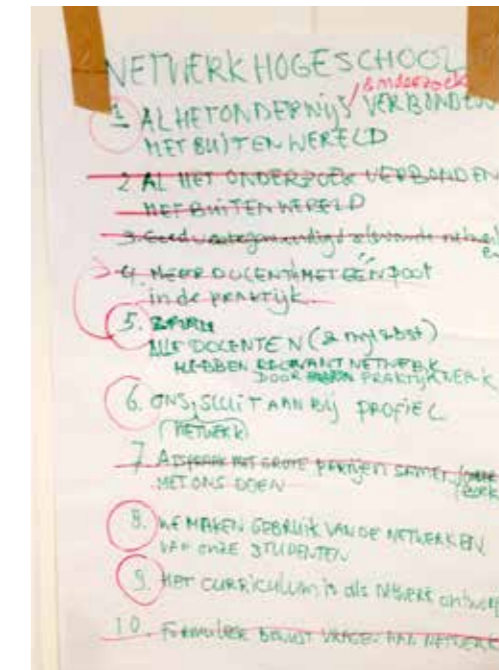 NETWERK HOGESCHOOL
& onderzoek
1 AL HET ONDERWIJS VERBONDEN
MET BUITENWERELD
2 AL HET ONDERZOEK VERBONDEN
MET BUITENWERELD
3. Goed vertegenwoordigd relevante
4. MEER DOCENTEN MET ÉÉN POOT
in de praktijk.
5.
ALLE DOCENTEN (&
HEBBEN RELEVANT NETWERK
DOOR PRAKTIJKWERK
6. ONS SLUIT AAN BIJ PROFIEL
(NETWERK)
7 GROTE PARTIJEN SAMEN
MET ONS DOEN
8. WE MAKEN GEBRUIK VAN DE NETWERKEN
VAN ONZE STUDENTEN
9. HET CURRICULUM is als NETWERK
10. Formuleer BEWUST VRAGEN AAN NETWERK